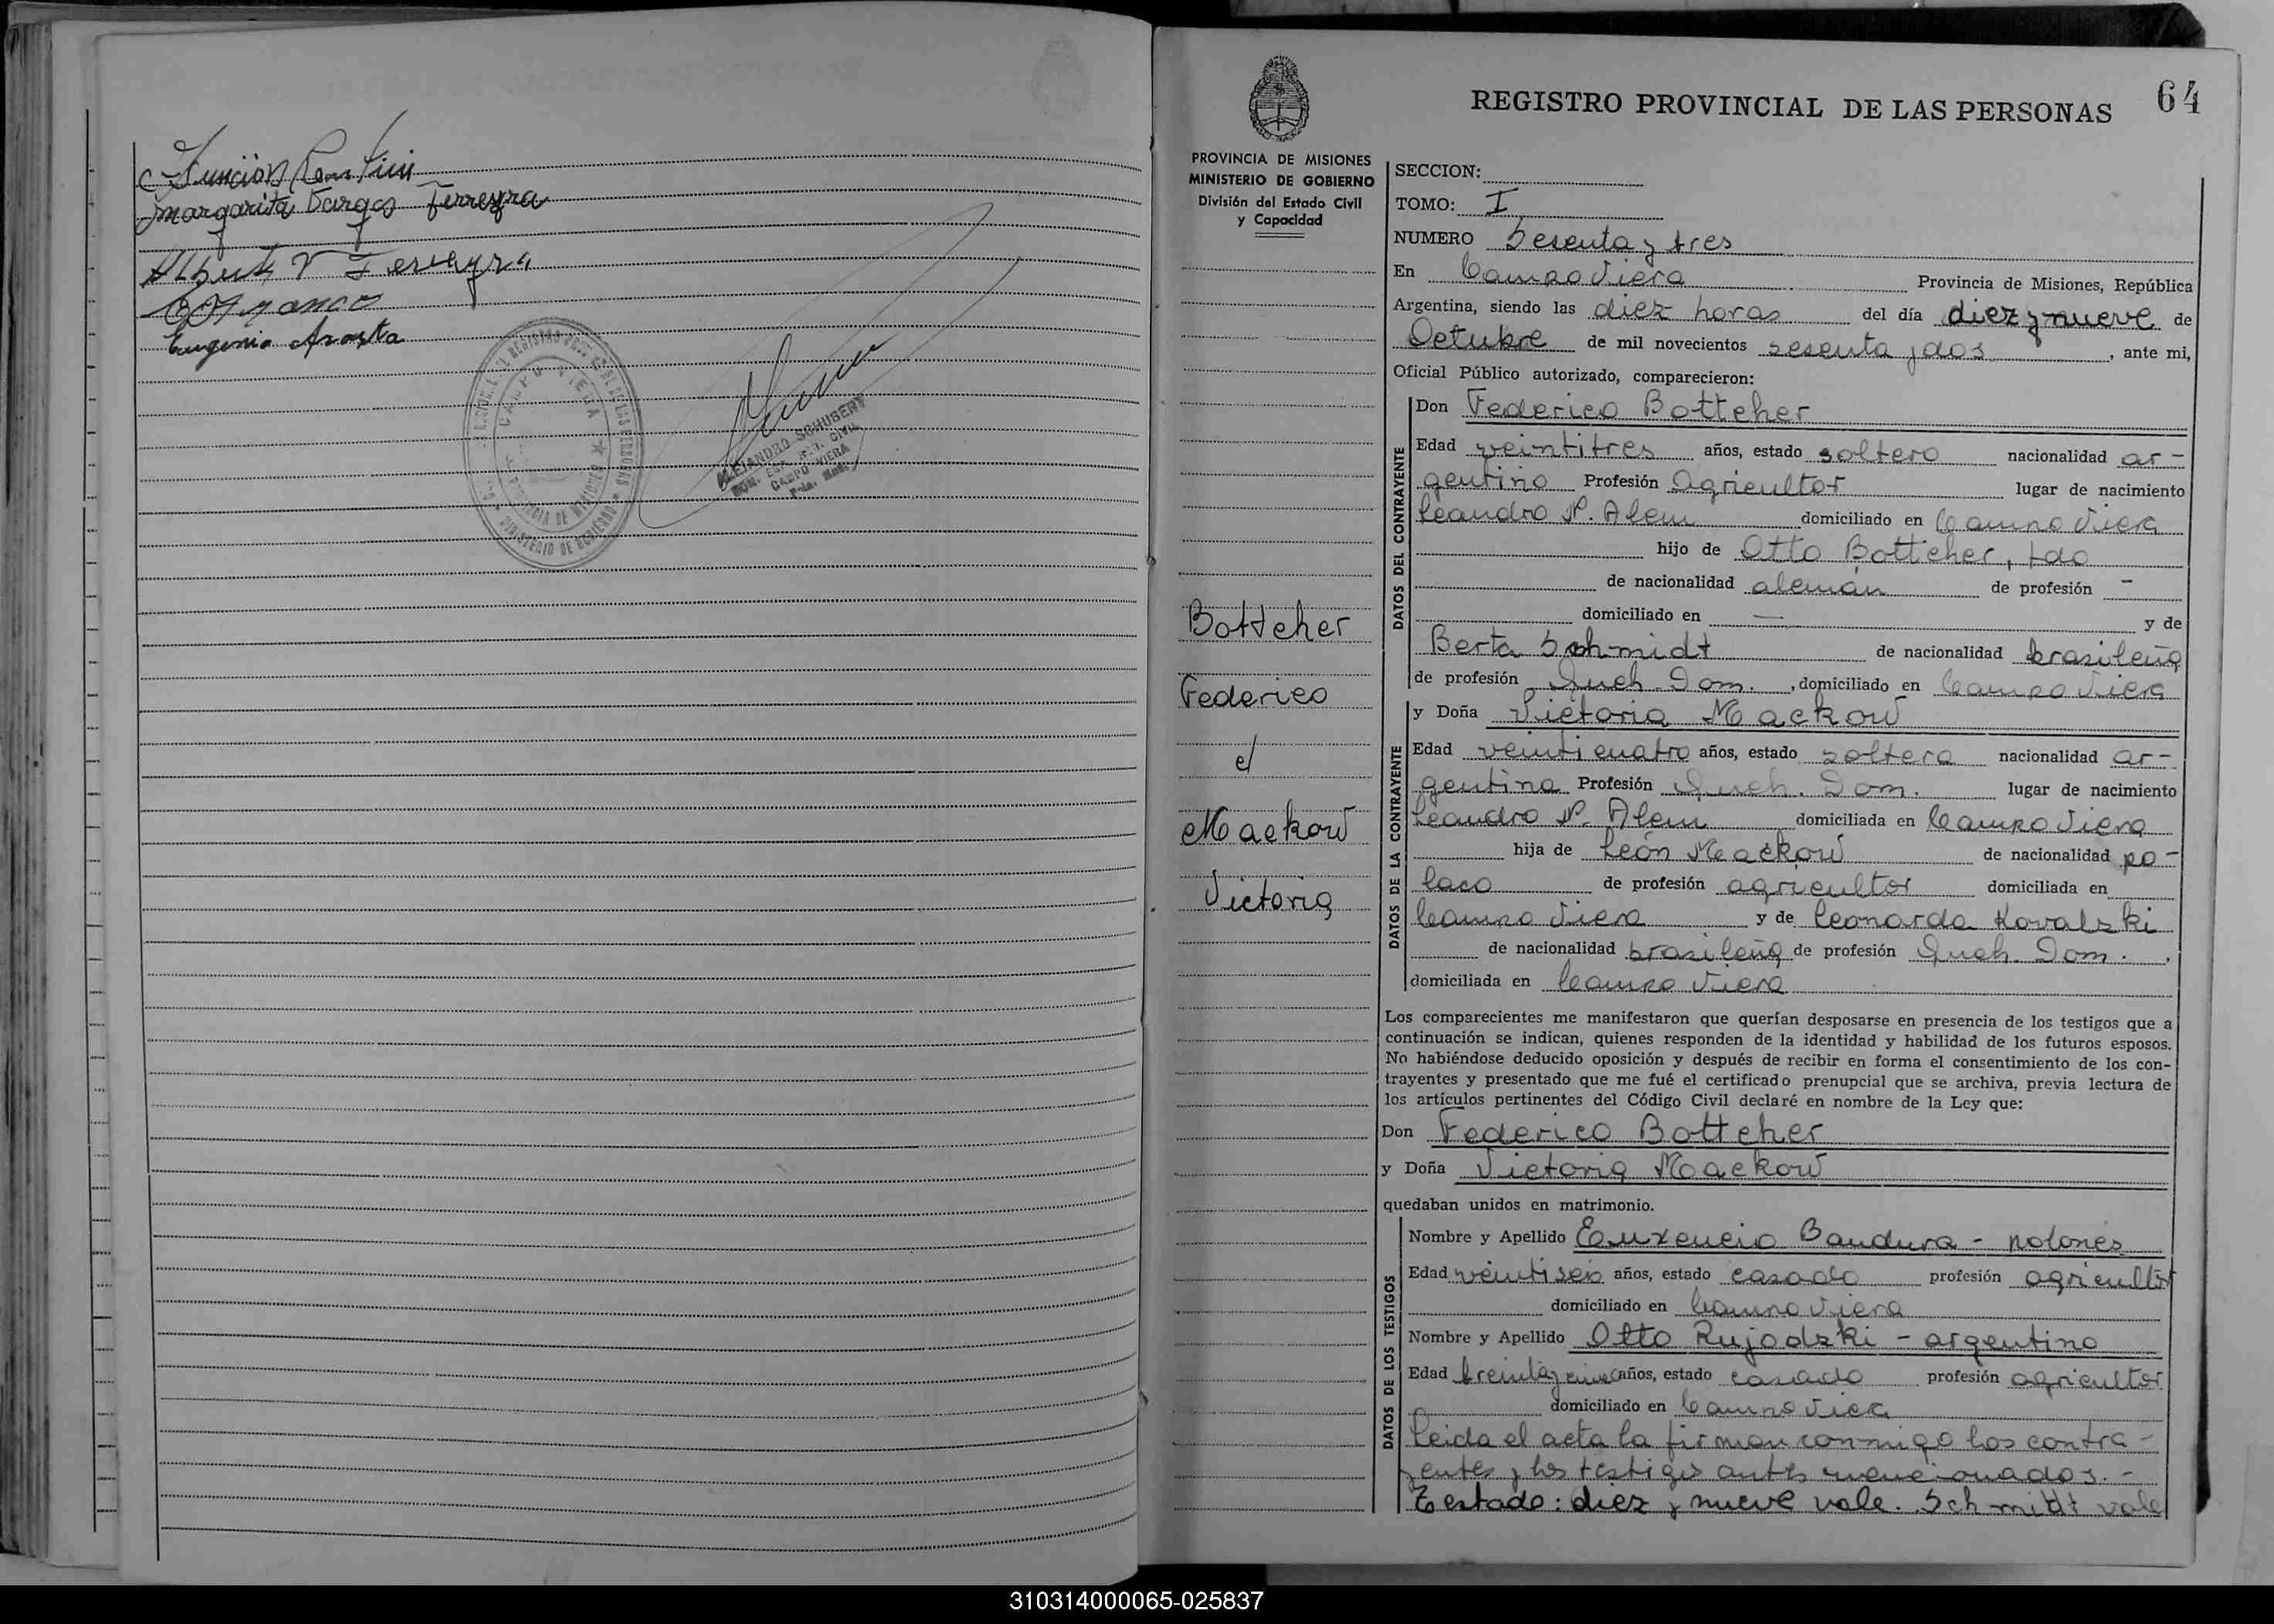 Asunción
Margarita Vargas Ferreyra
Albert V Ferreyra
Eugenio Acosta
CAMPO VIERA
PROVINCIA DE MISIONES
MINISTERIO DE GOBIERNO
ALEJANDRO SCHUBERT
CAMPO VIERA
REGISTRO PROVINCIAL DE LAS PERSONAS
64
PROVINCIA DE MISIONES
MINISTERIO DE GOBIERNO
División del Estado Civil
y Capacidad
Bottcher
Federico
c/
Mackow
Victoria
SECCION:
TOMO: I
NUMERO Sesenta y tres
En Campo Viera Provincia de Misiones, República
Argentina, siendo las diez horas del día diez y nueve de
Octubre de mil novecientos sesenta y dos, ante mi,
Oficial Público autorizado, comparecieron:
DATOS DEL CONTRAYENTE
Don Federico Bottcher
Edad veintitres años, estado soltero nacionalidad ar-
gentino Profesión Agricultor lugar de nacimiento
Leandro N. Alem domiciliado en Campo Viera
hijo de Otto Bottcher, fdo
de nacionalidad alemán de profesión -
domiciliado en — y de
Berta Schmidt de nacionalidad brasileña
de profesión Queh. Dom., domiciliado en Campo Viera
DATOS DE LA CONTRAYENTE
y Doña Victoria Mackow
Edad veinticuatro años, estado soltera nacionalidad ar-
gentina Profesión Queh. Dom. lugar de nacimiento
Leandro N. Alem domiciliada en Campo Viera
hija de León Mackow de nacionalidad po-
laco de profesión agricultor domiciliada en
Campo Viera y de Leonarda Kovalski
de nacionalidad brasileña de profesión Queh. Dom.,
domiciliada en Campo Viera
Los comparecientes me manifestaron que querían desposarse en presencia de los testigos que a
continuación se indican, quienes responden de la identidad y habilidad de los futuros esposos.
No habiéndose deducido oposición y después de recibir en forma el consentimiento de los con-
trayentes y presentado que me fué el certificado prenupcial que se archiva, previa lectura de
los artículos pertinentes del Código Civil declaré en nombre de la Ley que:
Don Federico Bottcher
y Doña Victoria Mackow
quedaban unidos en matrimonio.
DATOS DE LOS TESTIGOS
Nombre y Apellido Euxencio Bandura - polonés
Edad veintiseis años, estado casado profesión agricultor
domiciliado en Campo Viera
Nombre y Apellido Otto Rujodzki - argentino
Edad treinta y cinco años, estado casado profesión agricultor
domiciliado en Campo Viera
Leida el acta la firman conmigo los contra-
yentes y los testigos antes mencionados. -
Testado: diez y nueve vale. Schmidt vale
310314000065-025837